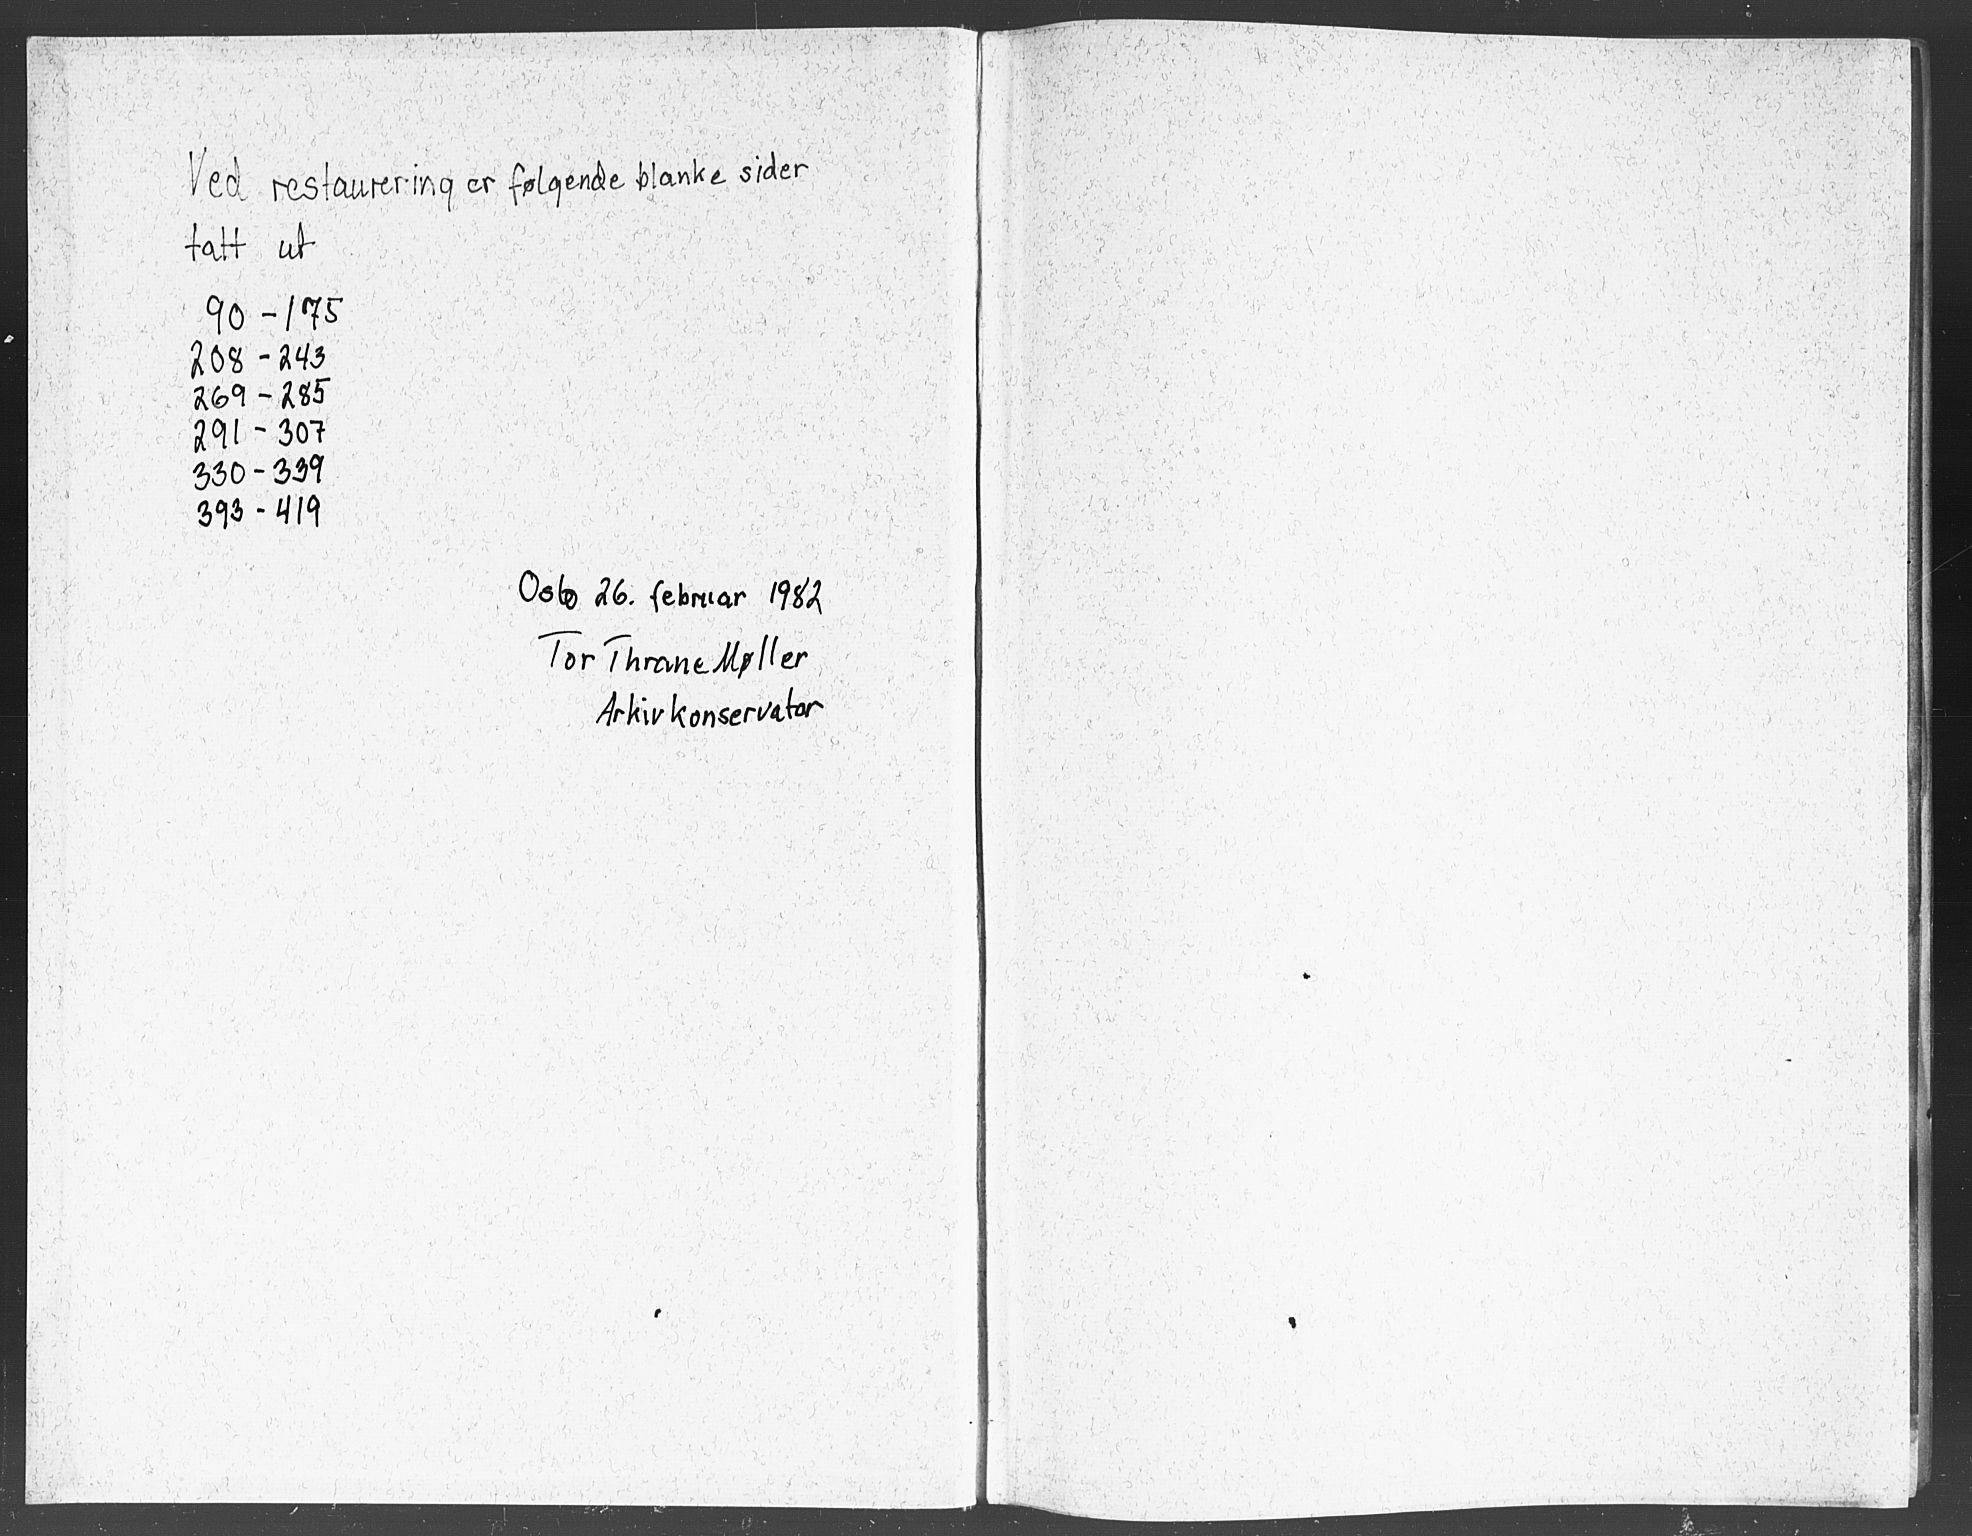 Ved restaurering er følgende blanke sider
tatt ut
90 - 175
208 - 243
269 - 285
291 - 307
330 - 339
393 - 419
Oslo 26. februar 1982
Tor Thrane Møller
Arkivkonservator